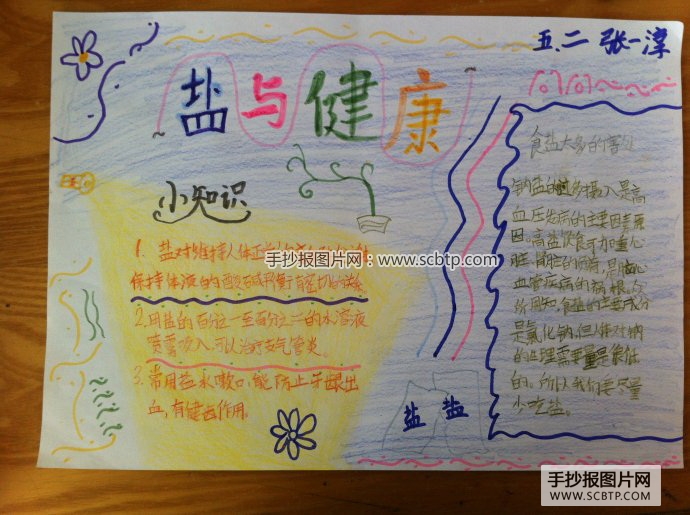 五.二 张一淳
盐与健康
小知识
1. 盐对维持人体正
手抄报图片网：www.scbtp.com
保持体液的酸碱平衡有密切的关系
2.用盐的百分之一至百分之二的水溶液
雾吸入可以治疗支气管炎。
3.常用盐水嗽口,能防止牙龈出
血,有健齿作用。
盐 盐
食盐太多的害处
钠盐的过多摄入是高
血压发病的主要因素原
因。高盐饮食可加重心
脏、的负荷,是心
血管疾病的病根。众
所周知,食盐的主要成分
是氯化钠,但人体对钠
的生理需要量是很低
的。所以我们要尽量
少吃盐。
手抄报图片网
WWW.SCBTP.COM